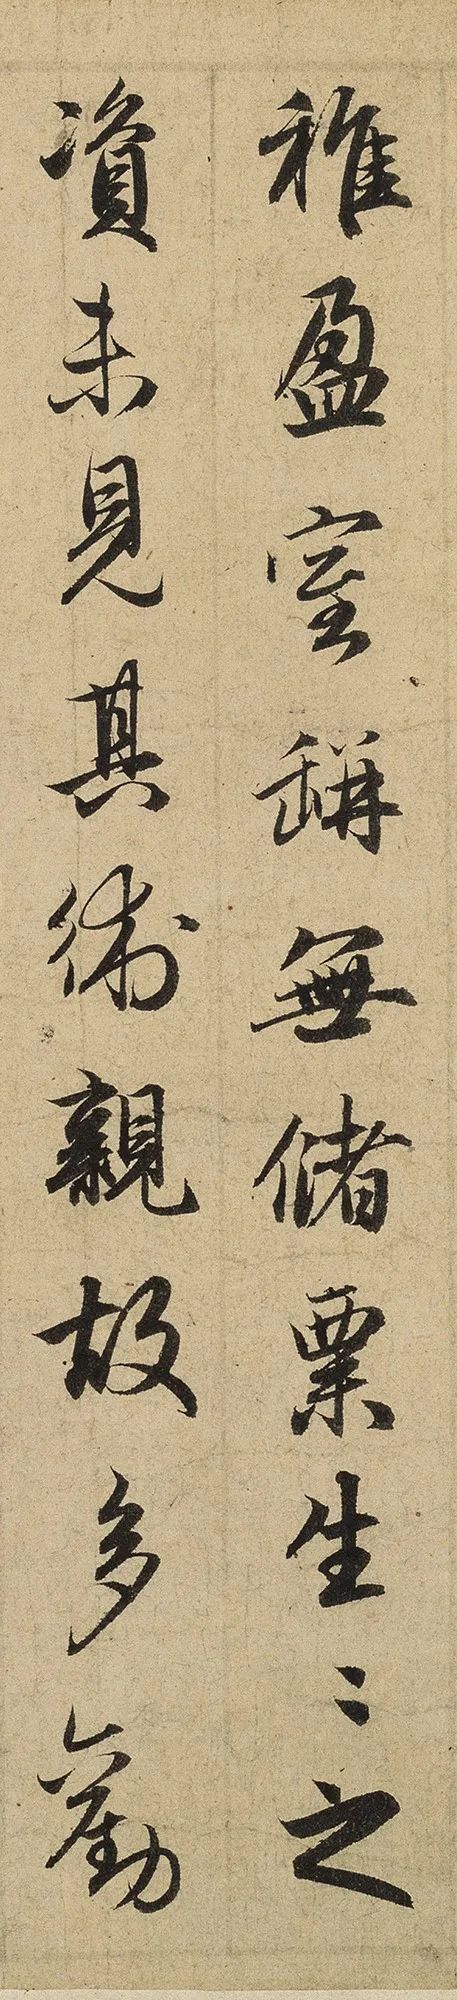 稚盈室缾無儲粟生〻之
資未見其術親故多勸